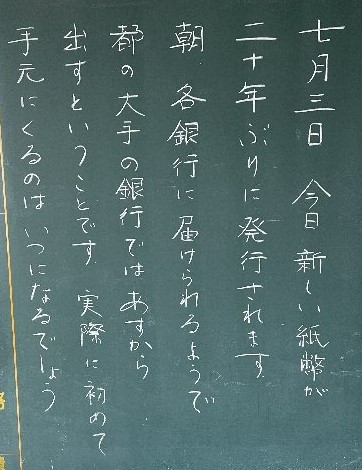 七月三日 今日 新しい紙幣が
二十年ぶりに発行されます。
朝、各銀行に届けられるようで
都の大手の銀行ではあすから
出すということです。実際に初めて
手元にくるのはいつになるでしょう